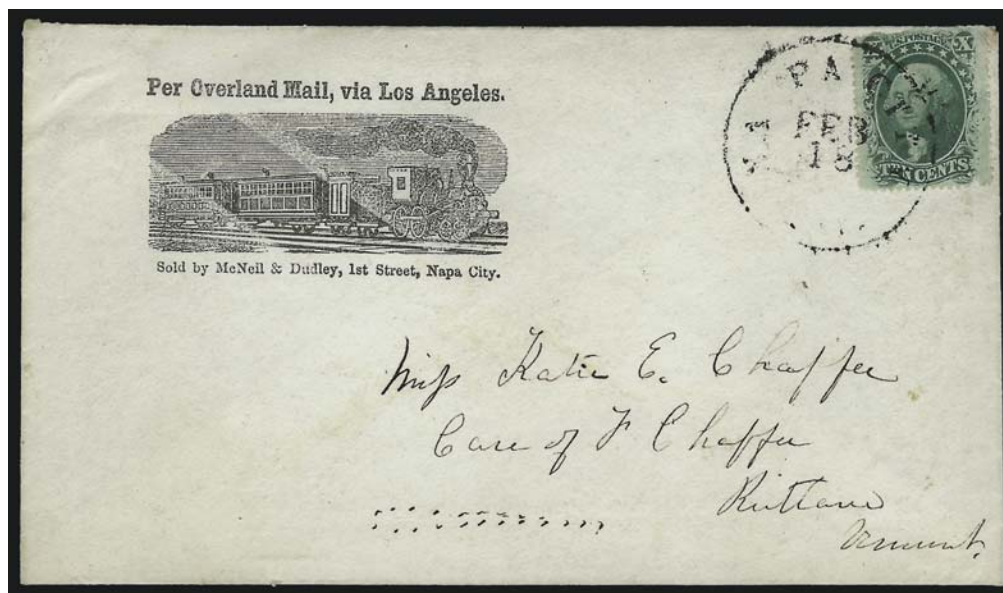 Per Overland Mail, via Los Angeles.
Sold by McNeil & Dudley, 1st Street, Napa City.
U.S. POSTAGE
X
TEN CENTS
FEB
18
Miss Katie E. Chaffee
Care of F Chaffee
Rutland
Vermont.